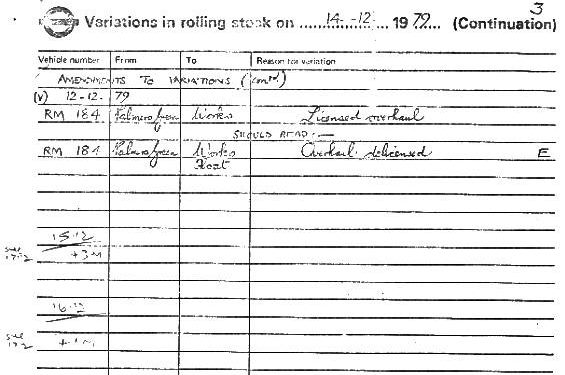 3
Variations in rolling stock on 14-12- 1979 (Continuation)
Vehicle number From To Reason for variation
AMENDMENTS TO VARIATIONS (Contd)
(V) 12-12-79
RM 184 Palmers Green Works Licensed overhaul
SHOULD READ:-
RM 184 Palmers Green Works Overhaul delicensed E
Float
15-12
see +3M
17-12
16-12
see
17-2